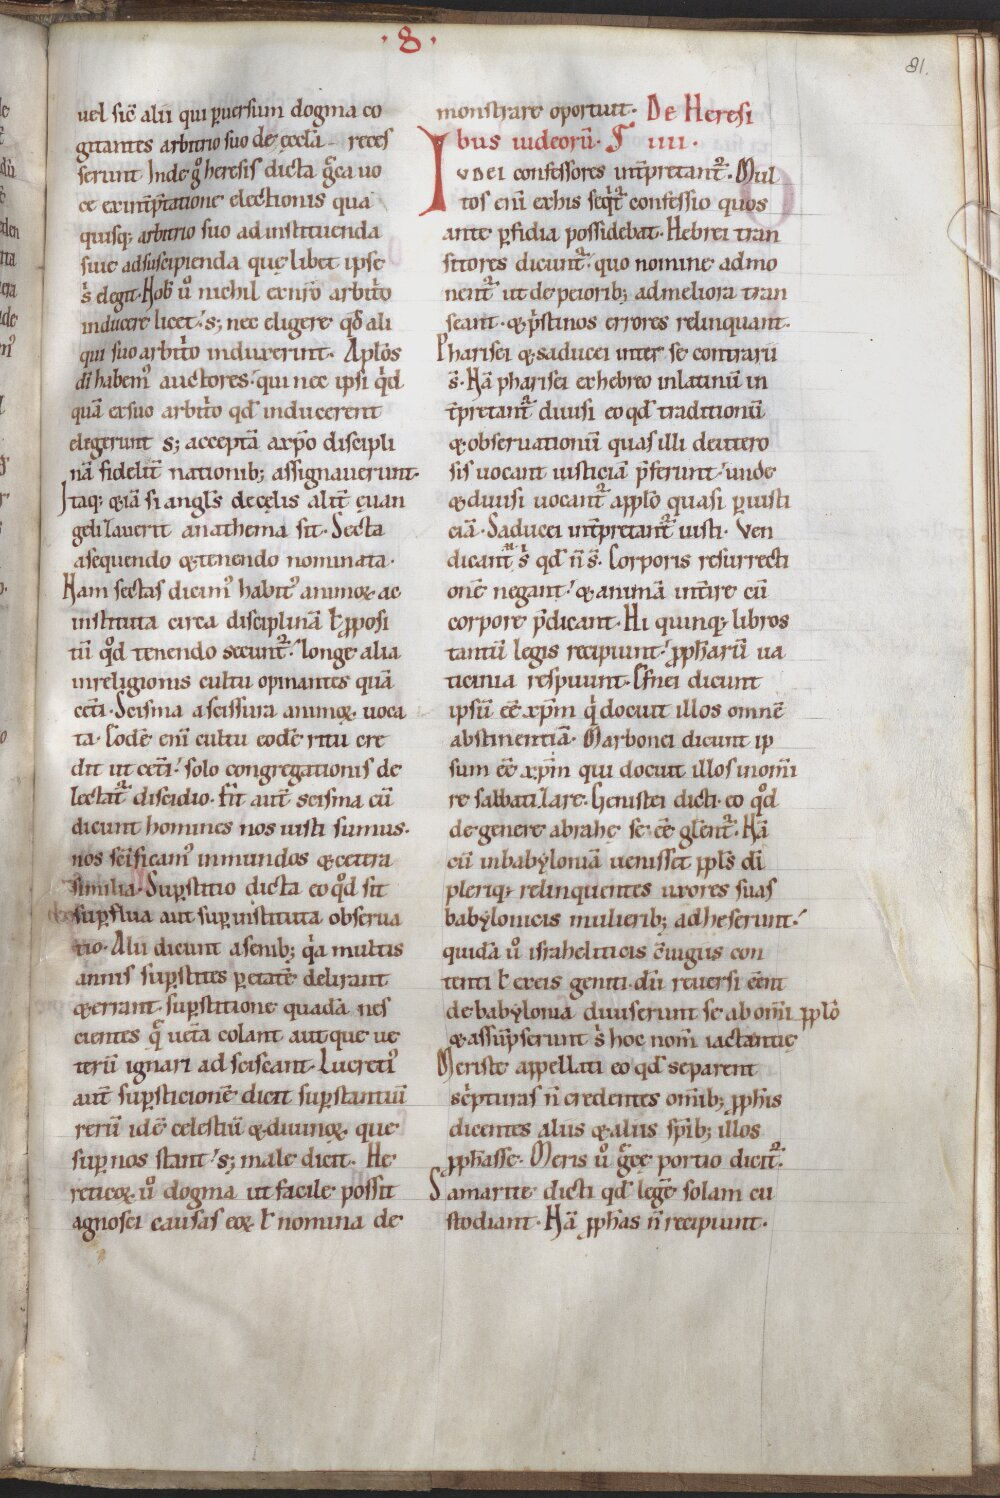 ·8·
81.
uel sic̄ alii qui ꝑuersum dogma co
gitantes arbitrio suo de ęccła reces
serunt Inde g̊ heresis dicta g̃ca uo
ce exint̄p̄tatione electionis qua
quisq; arbitrio suo ad instituenda
siue ad suscipienda quę libet ipse
s̓ degit· Nob̄ ů nichil ex nr̄o arbit̓o
inducere licet· s; nec eligere qd̄ ali
qui suo arbit̓o induxerint· Apłos
dī habem̓ auctores· qui nec ipsi q̓d
quā ex suo arbit̓o qd̄ inducerent
elegerunt s; acceptā a xp̄o discipli
nā fidelit̄ nationib; assignauerunt·
Itaq; & iā si angls̄ de cęlis alit̄ euan
gelizauerit anathema sit· Secta
a sequendo & tenendo nominata·
Nam sectas dicim̓ habit̓ animoꝝ ac
instituta circa disciplinā ł ꝓposi
tū q̊d tenendo secunt᷑· longe alia
in religionis cultu opinantes quā
cet̄i· Scisma a scissura animoꝝ uoca
ta· Eodē eni̅ cultu eodē ritu cre
dit ut cet̄i· solo congregationis de
lectat᷑ discidio· Fit aut̄ scisma cū
dicunt homines nos iusti sumus·
nos sc̄ificam̓ inmundos & cetera
similia· Suꝑstitio dicta eo q̊d sit
suꝑflua aut suꝑ instituta obserua
tio· Alii dicunt a senib; q̓a multis
annis suꝑstites ꝑ etatē delirant
& errant· suꝑstitione quadā nes
cientes q̨ uet̄a colant aut que ue
terū ignari adsciscant· Lucreti̓
aut̄ suꝑsticionē dicit suꝑstantiū
rerū idē celestiū & diuinoꝝ· que
suꝑ nos stant· s; male dicit· He
reticoꝝ ů dogma ut facile possit
agnosci causas eoꝝ ł nomina de
monstrare oportuit· De Heresi
bus iudeorū· iiii·
Iudei confessores int̄pretant᷑· Mul
tos eni̅ ex his seq̓t᷑ confessio quos
ante ꝑfidia possidebat· Hebrei tran
sitores dicunt᷑· quo nomine admo
nent᷑ ut de peiorib; ad meliora tran
seant· & p̓stinos errores relinquant·
Pharisei & saducei inter se contrarii
s̄· Nā pharisei ex hebreo in latinū in
t̄pretant᷑ diuisi eo qd̄ traditionū
& obseruationū quas illi deutero
sis uocant iusticiā p̄ferunt· unde
& diuisi uocant᷑ a ppło quasi ꝑ iusti
ciā· Saducei int̄pretant᷑ iusti· Ven
dicant s̓ qd̄ n̄ s̄· Corporis resurrecti
onē negant· & animā int̄ire cū
corpore p̄dicant· Hi quinq; libros
tantū legis recipiunt· ꝓph̄arū ua
ticinia respuunt· Esnei dicunt
ipsū ēē xp̄m q̓ docuit illos omnē
abstinentiā· Marbonei dicunt ip
sum ēē xp̄m qui docuit illos in om̄i
re sabbatizare· Genistei dicti· eo q̊d
de genere abrahę se ēē gl̄ent᷑· Nā
cū in babyloniā uenisset ppl̄s dī
pleriq; relinquentes uxores suas
babylonicis mulierib; adheserunt·
quidā ů israheliticis c̄iugiis con
tenti ł ex eis geniti· dū reuersi eēnt
de babylonia diuiserunt se ab om̄i ppło
& assūpserunt s̓ hoc nom̄ iactantię
Meriste appellati eo qd̄ separent
sc̓pturas n̄ credentes om̄ib; ꝓph̄is
dicentes aliis & aliis sp̄ib; illos
ꝓph̄asse· Meris ů g̃ce portio dicit᷑·
Samarite dicti qd̄ legē solam cu
stodiant· Nā ꝓph̄as n̄ recipiunt·